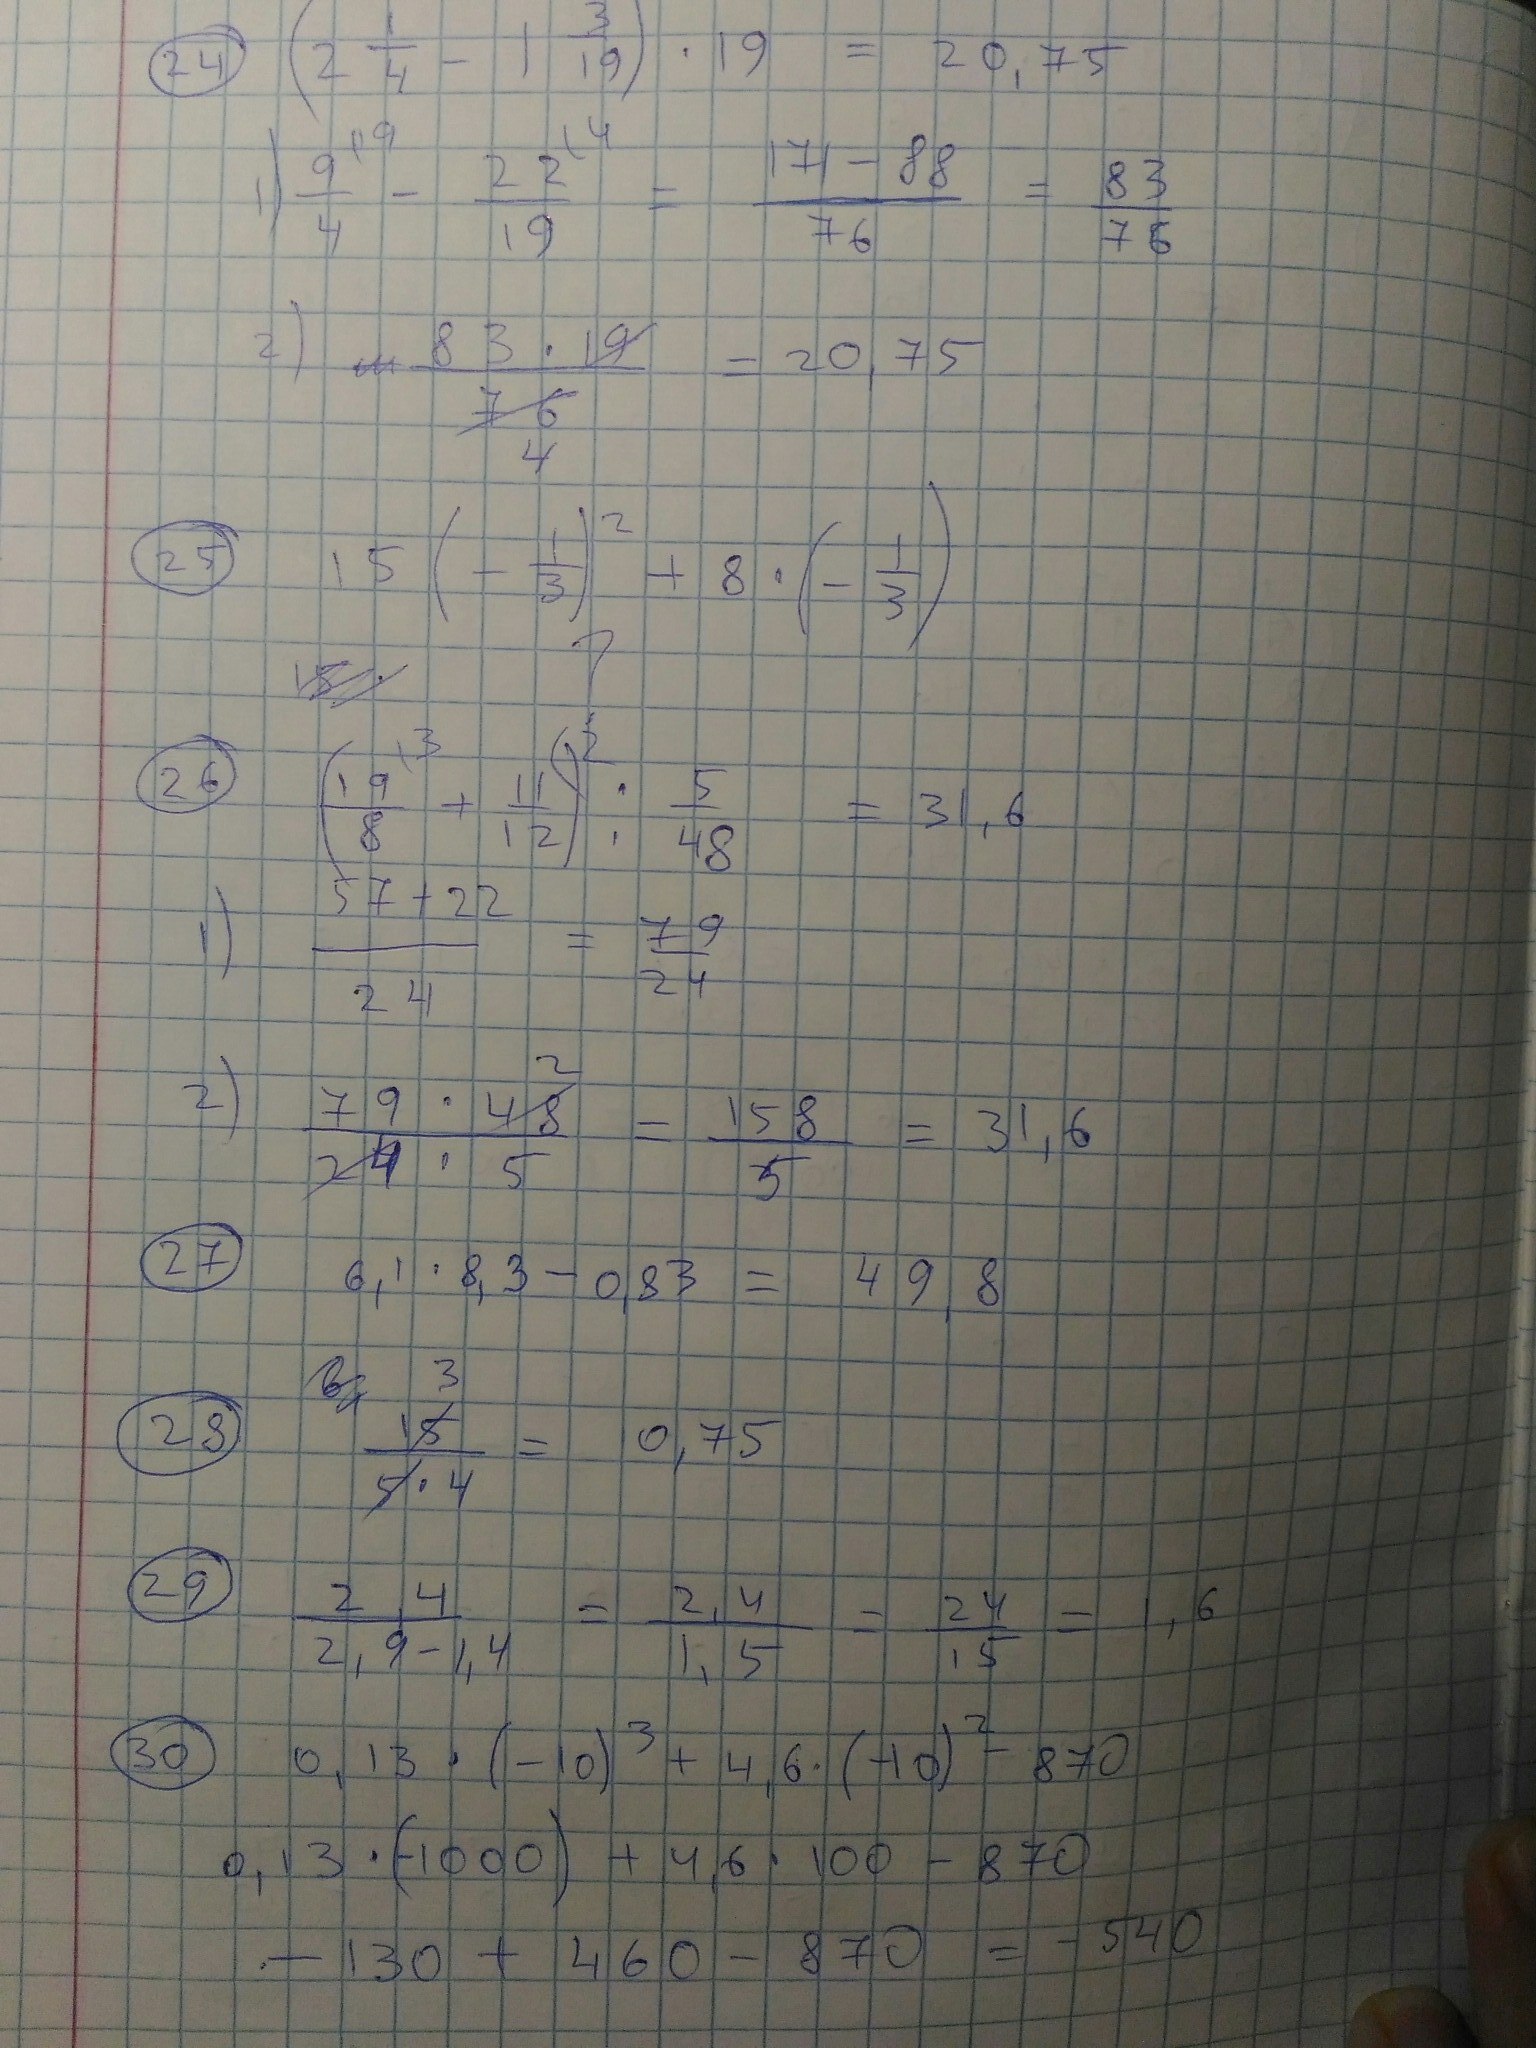 24 (2 1/4 - 1 3/19) · 19 = 20,75
1) 9/4 - 22/19 = (171 - 88)/76 = 83/76
2) (83 · 19)/76 = 20,75
4
25 15 (- 1/3)² + 8 · (- 1/3)
?
26 (19/8 + 11/12) : 5/48 = 31,6
1) (57 + 22)/24 = 79/24
2) (79 · 48)/(24 · 5) = 158/5 = 31,6
2
27 6,1 · 8,3 - 0,83 = 49,8
3
28 15/(5 · 4) = 0,75
29 2,4/(2,9 - 1,4) = 2,4/1,5 = 24/15 = 1,6
30 0,13 · (-10)³ + 4,6 · (-10)² - 870
0,13 · (-1000) + 4,6 · 100 - 870
- 130 + 460 - 870 = -540